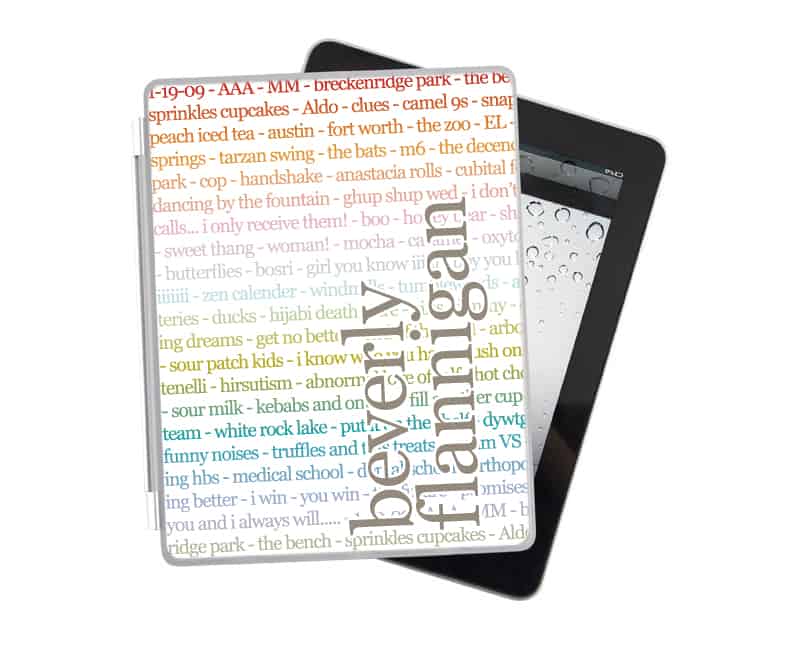 1-19-09 - AAA - MM - breckenridge park - the be
sprinkles cupcakes - Aldo - clues - camel 9s - snap
peach iced tea - austin - fort worth - the zoo - EL -
springs - tarzan swing - the bats - m6 - the decend
park - cop - handshake - anastacia rolls - cubital f
dancing by the fountain - ghup shup wed - i don't
calls... i only receive them! - boo -
- sweet thang - woman! - mocha -
- butterflies - bosri - girl you know
iiiiiii - zen calender -
teries - ducks - hijabi death
ing dreams - get no - arbo
- sour patch kids - i know
tenelli - hirsutism - hot cho
- sour milk - kebabs and fill
team - white rock lake - the - dywtg
funny noises - truffles and treats VS
ing hbs - medical school -
ing better - i win - you win -
you and i always will..... - MM - b
ridge park - the bench - sprinkles cupcakes - Aldo
beverly
flannigan